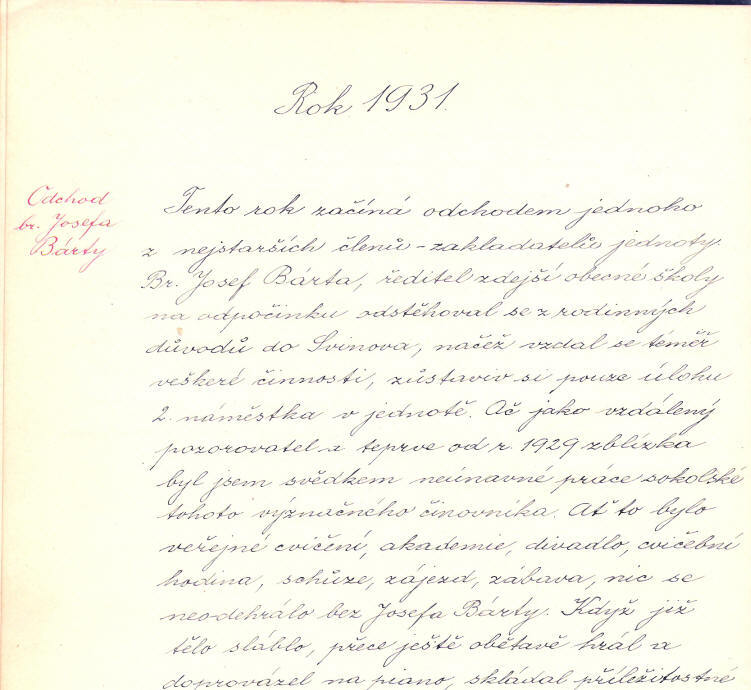 Rok 1931.
Odchod
br. Josefa
Bárty
Tento rok začíná odchodem jednoho
z nejstarších členů - zakladatelů jednoty.
Br. Josef Bárta, ředitel zdejší obecné školy
na odpočinku odstěhoval se z rodinných
důvodů do Svinova, načež vzdal se téměř
veškeré činnosti, zůstaviv si pouze úlohu
2. náměstka v jednotě. Ač jako vzdálený
pozorovatel a teprve od r. 1929 zblízka
byl jsem svědkem neúnavné práce sokolské
tohoto význačného činovníka. Ať to bylo
veřejné cvičení, akademie, divadlo, cvičební
hodina, schůze, zájezd, zábava, nic se
neodehrálo bez Josefa Bárty. Když již
tělo sláblo, přece ještě obětavě hrál a
doprovázel na piano, skládal příležitostné